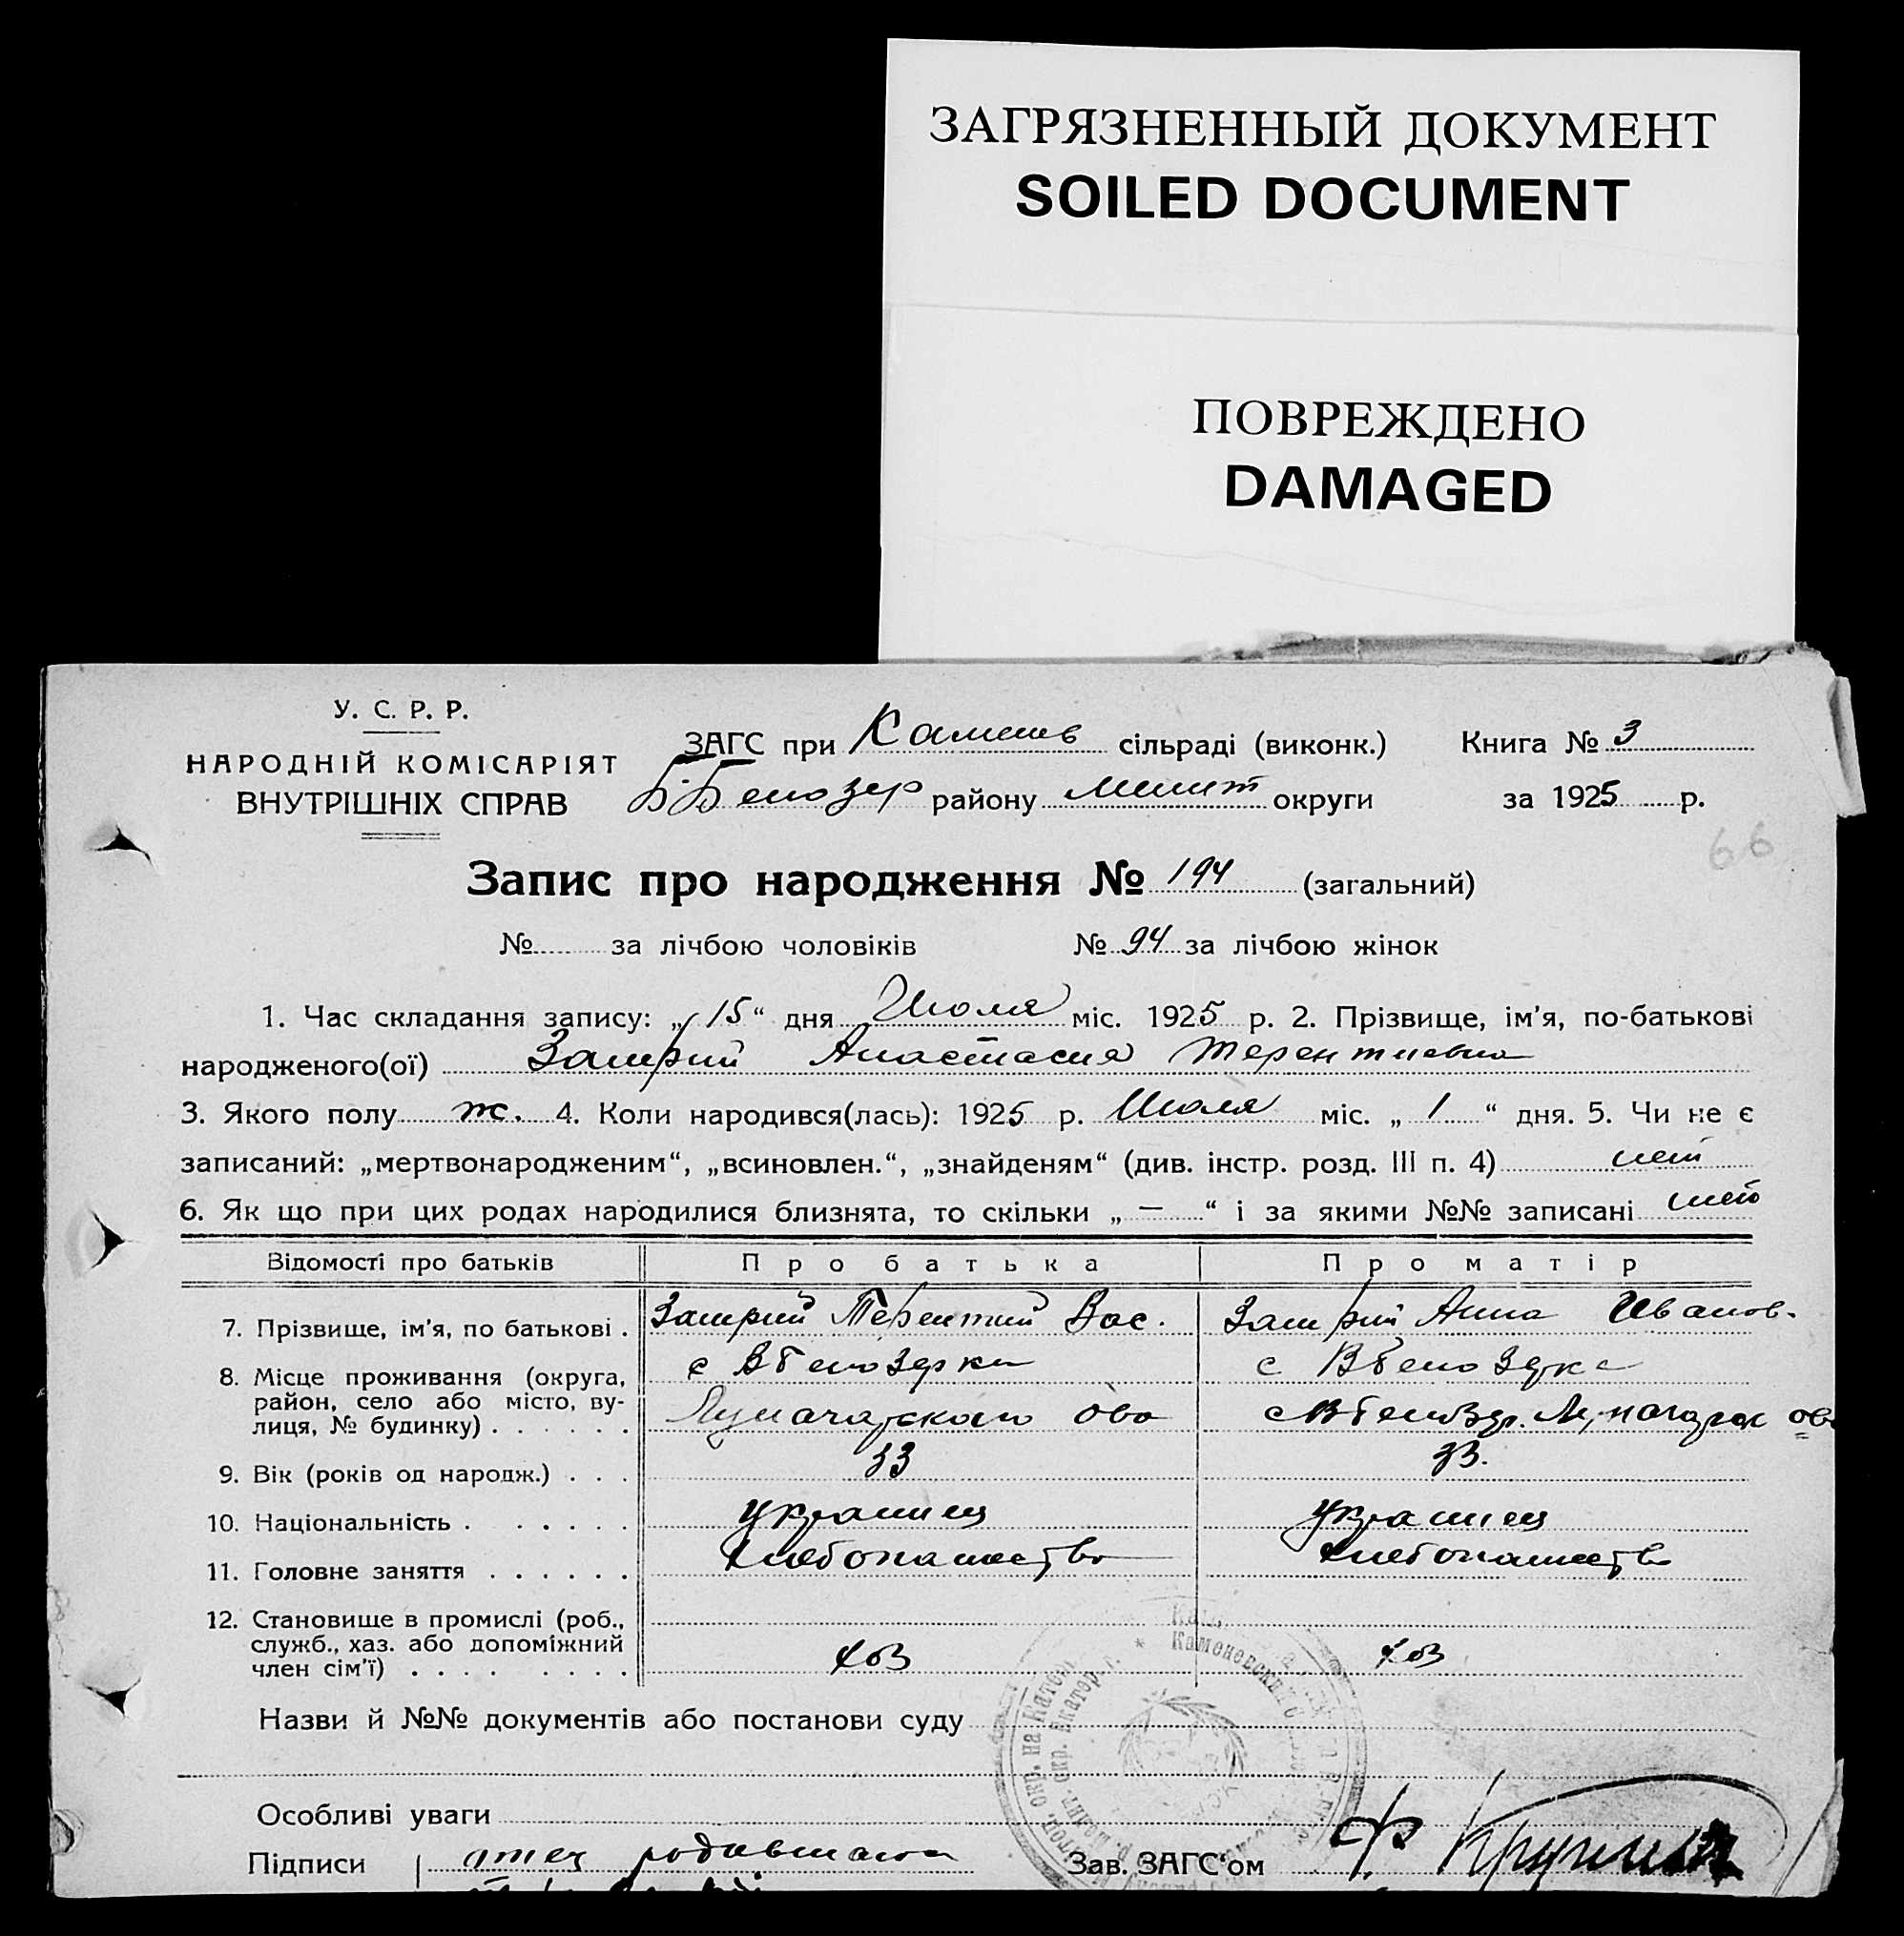 ЗАГРЯЗНЕННЫЙ ДОКУМЕНТ
SOILED DOCUMENT
ПОВРЕЖДЕНО
DAMAGED
У. С. Р. Р.
НАРОДНІЙ КОМІСАРІЯТ
ВНУТРІШНІХ СПРАВ
ЗАГС при Каменв сільраді (виконк.) Книга № 3
Б-Белозер району Мелит округи за 1925 р.
66
Запис про народження № 194 (загальний)
№ за лічбою чоловіків № 94 за лічбою жінок
1. Час складання запису: „15“ дня Июля міс. 1925 р. 2. Прізвище, ім’я, по-батькові
народженого(ої) Анастасия Терентиевна
3. Якого полу ж. 4. Коли народився(лась): 1925 р. Июля міс. „1“ дня. 5. Чи не є
записаний: „мертвонародженим“, „всиновлен.“, „знайденям“ (див. інстр. розд. III п. 4) нет
6. Як що при цих родах народилися близнята, то скільки „—“ і за якими №№ записані нет
Відомості про батьків Про батька Про матір
7. Прізвище, ім’я, по батькові . Терентий Вас. Анна Иванов.
8. Місце проживання (округа, с ВБелозерки с ВБелозерка
район, село або місто, ву-
лиця, № будинку) . . . . . . Луначарского ово
9. Вік (років од народж.) . . . 33 33.
10. Національність . . . . . . украинец украинец
11. Головне заняття . . . . . . хлебопашество хлебопашество
12. Становище в промислі (роб.,
служб., хаз. або допоміжний
член сім’ї) . . . . . . . . хоз хоз
Каменевский
Назви й №№ документів або постанови суду
Особливі уваги
Підписи отец родившагося Зав. ЗАГС‘ом